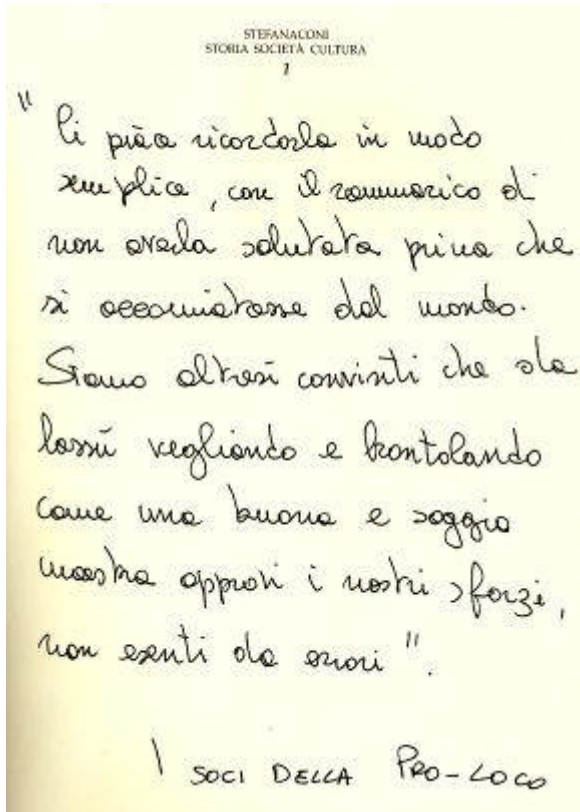 STEFANACONI
STORIA SOCIETÀ CULTURA
1
" Ci piace ricordarla in modo
semplice, con il rammarico di
non averla salutata prima che
si accomiatasse dal mondo.
Siamo altresì convinti che da
lassù vegliando e brontolando
come una buona e saggia
maestra approvi i nostri sforzi,
non esenti da errori ".
I SOCI DELLA PRO-LOCO